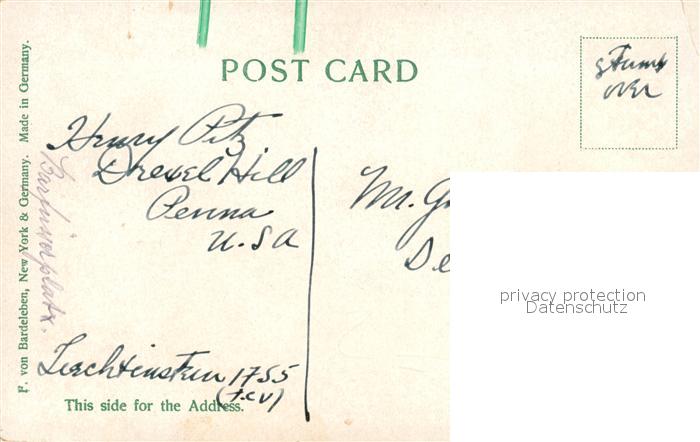 POST CARD
stamp
over
Henry Pitz
Drexel Hill
Penna
U.S.A
Mr. G
De
privacy protection
Datenschutz
Liechtenstein 1755
(T.C.V)
This side for the Address.
F. von Bardeleben, New York & Germany. Made in Germany.